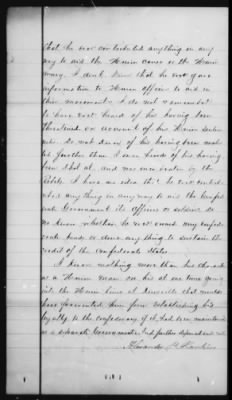 that he ever contributed anything in any
way to aid the Union cause or the Union
army. I don't know that he ever gave
information to Union officers to aid in
their movements. I do not remember
to have ever heard of his having been
threatened on account of his Union sentiments
Do not know of his having been molested
further than I ever heard of his having
been shot at, and was once beaten by the
Rebels. I have no idea that he ever contributed
anything in any way to aid the Confederate
Government its officers or soldiers. Do
not know whether he ever owned any confederate
bonds or done anything to sustain the
credit of the Confederate States.
I know nothing more than his character
as a Union man
into the Union lines at
have prevented him from establishing his
loyalty to the confederacy if it had been maintained
as a separate Government and further deponent
Alexander